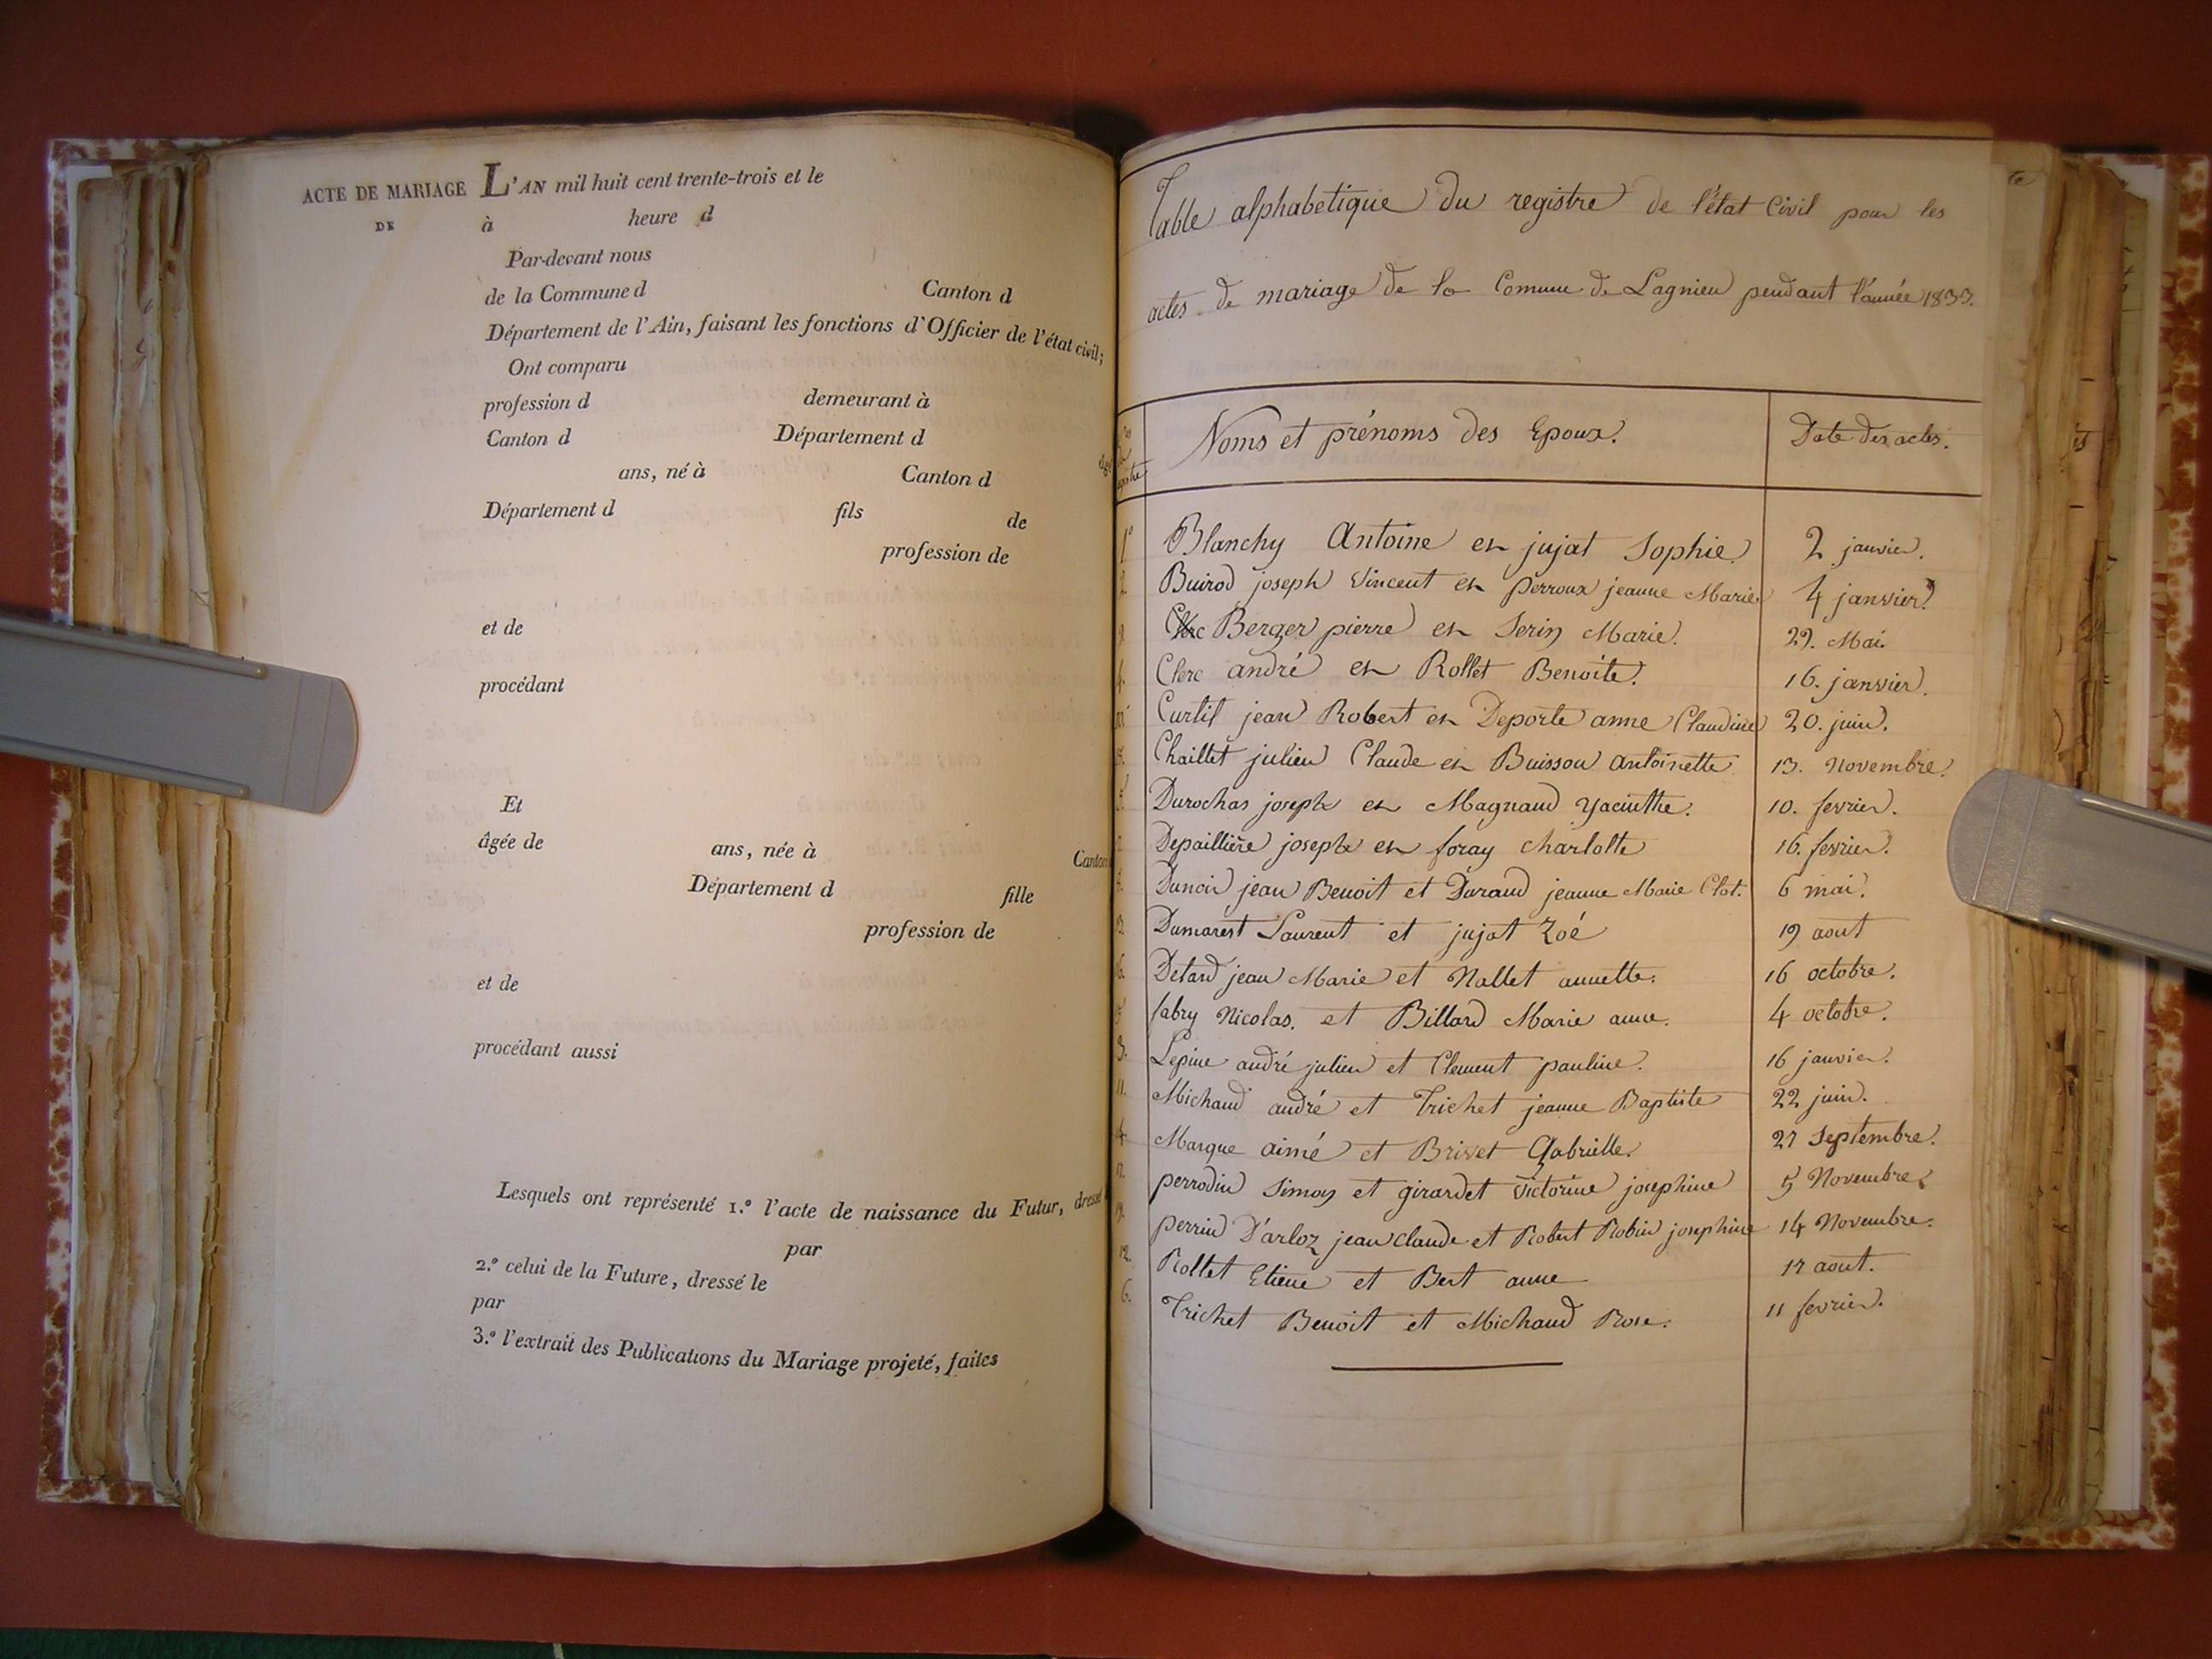 ACTE DE MARIAGE L'AN mil huit cent trente-trois et le
DE à heure d
Par-devant nous
de la Commune d Canton d
Département de l'Ain, faisant les fonctions d'Officier de l'état civil;
Ont comparu
profession d demeurant à
Canton d Département d âgé
ans, né à Canton d
Département d fils de
profession de
et de
procédant
Et
âgée de ans, née à Canton
Département d fille
profession de
et de
procédant aussi
Lesquels ont représenté 1.º l'acte de naissance du Futur, dressé
par
2.º celui de la Future, dressé le
par
3.º l'extrait des Publications du Mariage projeté, faites
Table alphabetique du registre de l'état Civil pour les
actes de mariage de la Commune de Lagnieu pendant l'année 1833.
Noms et prénoms des Epoux. Date des actes.
1º Blanchy Antoine et jujat Sophie 2 janvier.
2 Buirod joseph Vincent et perroux jeanne Marie 4 janvier.
Clerc Berger pierre et Serin Marie. 29. Mai.
4. Clerc andré et Rollet Benoite. 16. janvier.
Curtil jean Robert et Deporte anne Claudine 20. juin.
Chaillet julien Claude et Buisson antoinette 13. Novembre.
5. Durochas joseph et Magnaud yacinthe. 10. fevrier.
Depaillière joseph et foray charlotte 16. fevrier.
Dunoir jean Benoit et Durand jeanne Marie Clot. 6 mai.
13. Dumarest Laurent et jujat Zoé 19 aout
16. Detard jean Marie et Nallet annette. 16 octobre.
15. fabry Nicolas. et Billard Marie anne. 4 octobre.
3. Lepine andré julien et Clement pauline. 16 janvier.
11. Michaud andré et Trichet jeanne Baptiste 22 juin.
Marque aimé et Brivet Gabrielle. 27 Septembre.
perrodin Simon et girardet Victorine josephine 5 Novembre
19. perrin D'arloz jean claude et Robert Robin josephine 14 Novembre.
12. Rollet Etiene et Bert anne 17 aout.
6. Trichet Benoit et Michaud Rose. 11 fevrier.